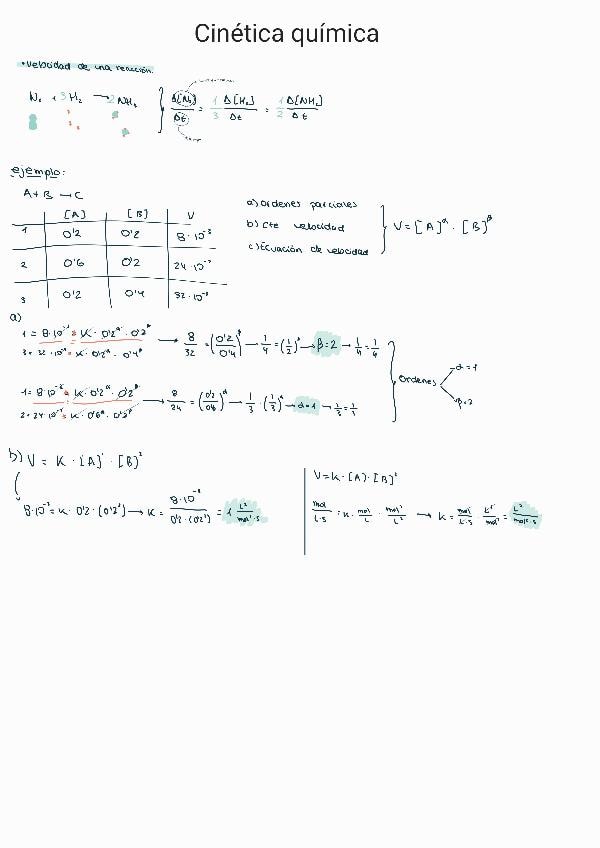 Cinética química
• Velocidad de una reacción:
N₂ + 3H₂ → 2NH₃ } Δ[N₂]/Δt = 1/3 Δ[H₂]/Δt = 1/2 Δ[NH₃]/Δt
ejemplo:
A + B → C
[A] [B] V
1 0'2 0'2 8·10⁻³
2 0'6 0'2 24·10⁻³
3 0'2 0'4 32·10⁻³
a) ordenes parciales
b) cte velocidad
c) Ecuación de velocidad
} V = [A]^α · [B]^β
a)
1 = 8·10⁻³ = K · 0'2^α · 0'2^β
3 = 32·10⁻³ = K · 0'2^α · 0'4^β
→ 8/32 = (0'2/0'4)^β → 1/4 = (1/2)^β → β = 2 → 1/4 = 1/4
1 = 8·10⁻³ = K · 0'2^α · 0'2^β
2 = 24·10⁻³ = K · 0'6^α · 0'2^β
→ 8/24 = (0'2/0'6)^α → 1/3 · (1/3)^α → α = 1 → 1/3 = 1/3
Ordenes
α = 1
β = 2
b) V = K · [A]¹ · [B]²
8·10⁻³ = K · 0'2 · (0'2²) → K = 8·10⁻³/0'2·(0'2²) = 1 L²/mol²·s
V = K · [A] · [B]²
mol/L·s = K · mol/L · mol²/L² → K = mol/L·s · L³/mol³ = L²/mol²·s